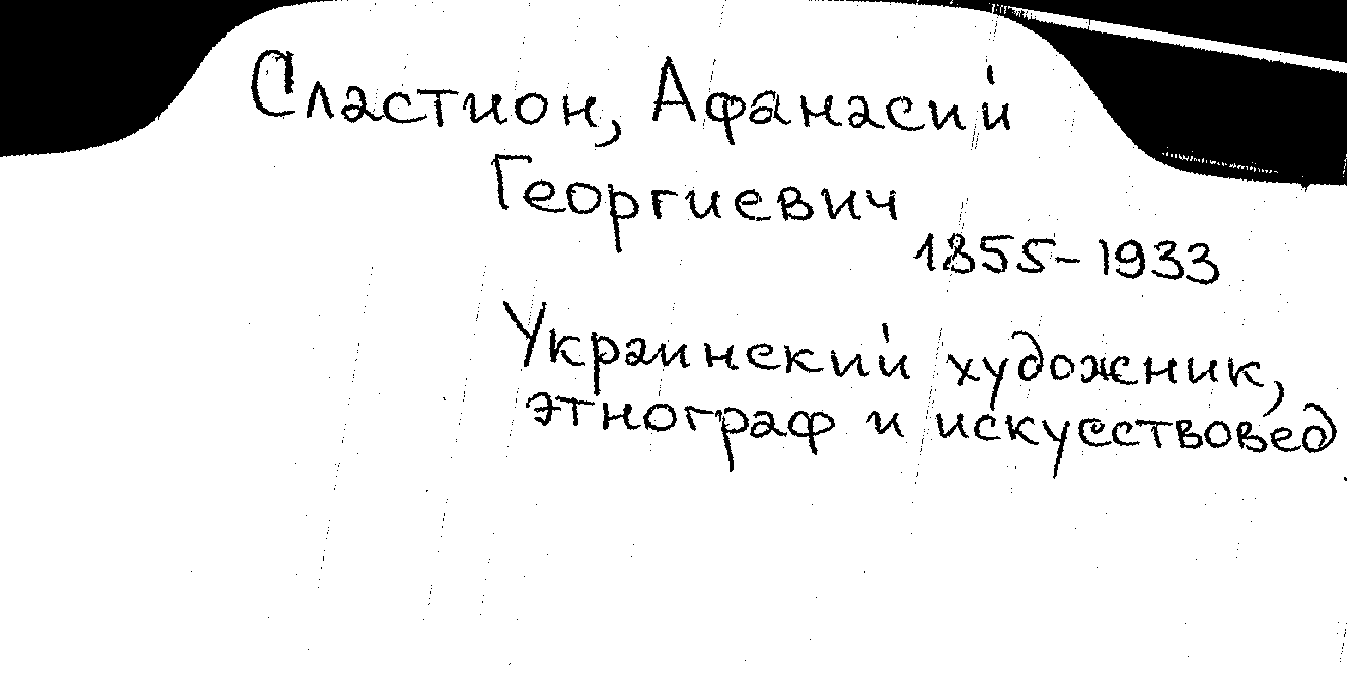 Сластион, Афанасий
Георгиевич
1855-1933
Украинский художник,
этнограф и искусствовед